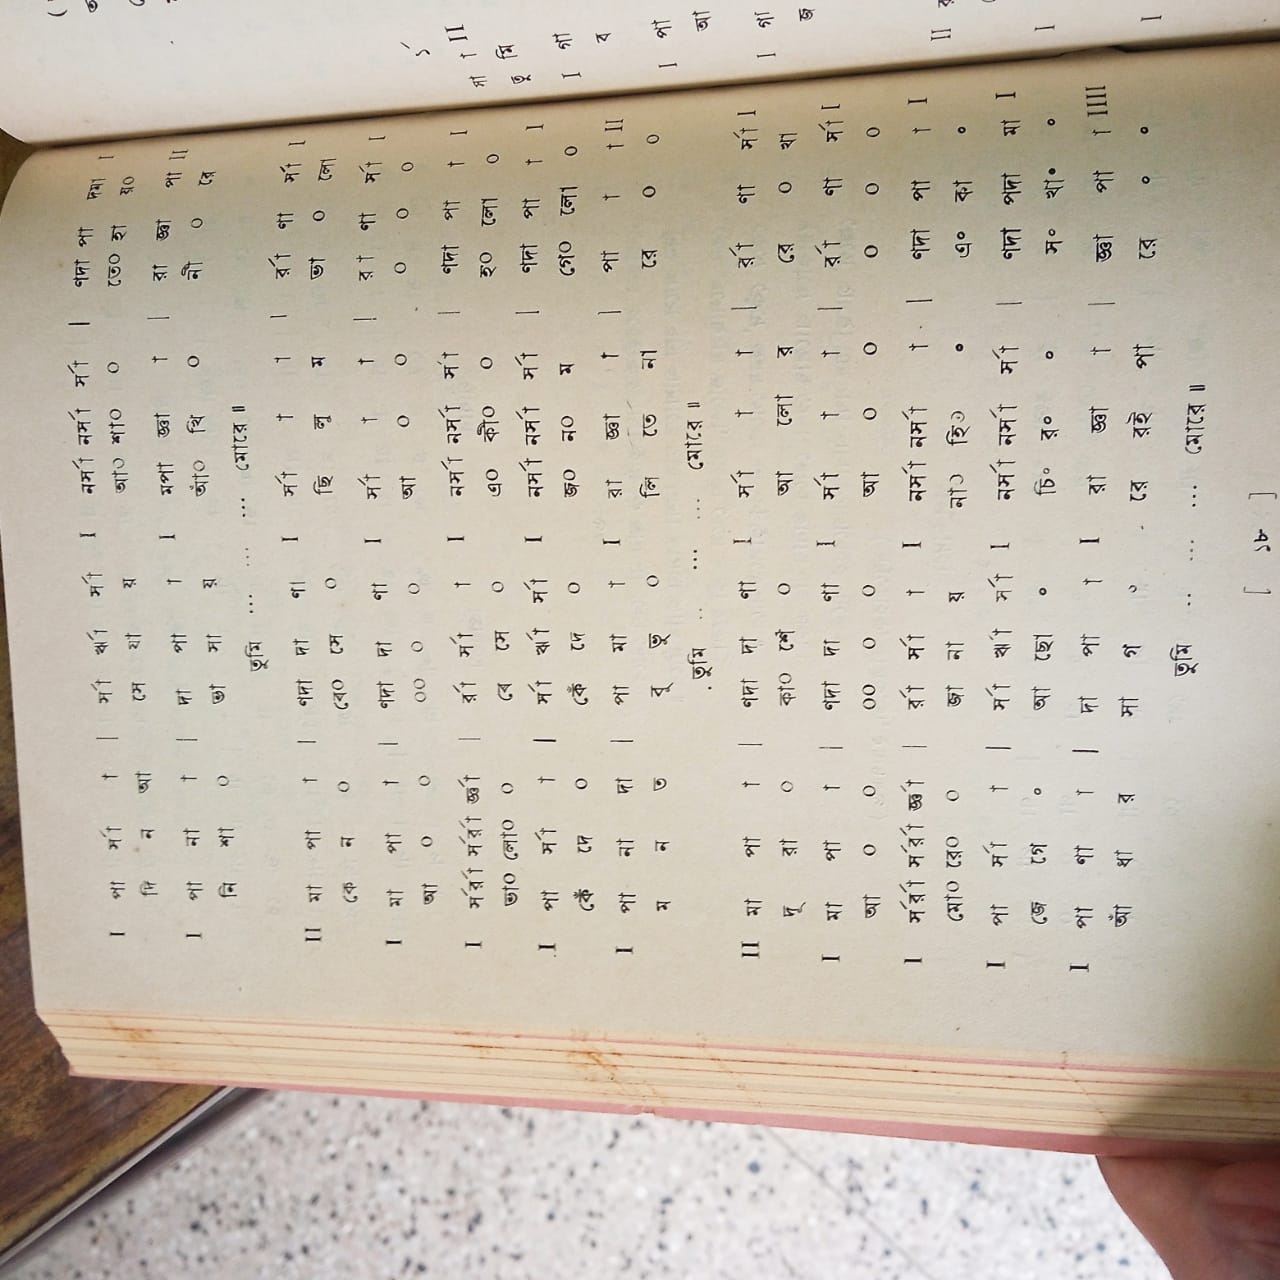 I পা র্সা া | র্সা র্ঋা র্সা I নর্সা নর্সা র্সা | ণদা পা দমা I
দি ন আ সে যা য় আ০ শা০ ০ তে০ হা য়০
I পা না া | দা পা া I মপা জ্ঞা া | রা জ্ঞা পা II
নি শা ০ ভা সা য় আঁ০ খি ০ নী ০ রে
তুমি ... ... ... মোরে ॥
II মা পা া | ণদা দা ণা I র্সা া া | র্রা ণা র্সা I
কে ন ০ বে০ সে ০ ছি লু ম ভা ০ লো
I মা পা া | ণদা দা ণা I র্সা া া | র্রা ণা র্সা I
আ ০ ০ ০০ ০ ০ আ ০ ০ ০ ০ ০
I র্সর্রা র্সর্রা র্জ্ঞা | র্রা র্সা া I নর্সা নর্সা র্সা | ণদা পা া I
ভা০ লো০ ০ বে সে ০ এ০ কী০ ০ হ০ লো ০
I পা র্সা া | র্সা র্ঋা র্সা I নর্সা নর্সা র্সা | ণদা পা া I
কেঁ দে ০ কেঁ দে ০ জ০ ন০ ম গে০ লো ০
I পা না দা | পা মা া I রা জ্ঞা া | পা া া II
ম ন ত বু তু ০ লি তে না রে ০ ০
তুমি ... ... ... মোরে ॥
II মা পা া | ণদা দা ণা I র্সা া া | র্রা ণা র্সা I
দূ রা ০ কা০ শে ০ আ লো র রে ০ খা
I মা পা া | ণদা দা ণা I র্সা া া | র্রা ণা র্সা I
আ ০ ০ ০০ ০ ০ আ ০ ০ ০ ০ ০
I র্সর্রা র্সর্রা র্জ্ঞা | র্রা র্সা া I নর্সা নর্সা া | ণদা পা া I
মো০ রে০ ০ জা না য় না০ হি০ ০ এ০ কা ০
I পা র্সা া | র্সা র্ঋা র্সা I নর্সা নর্সা র্সা | ণদা পদা মা I
জে গে ০ আ ছো ০ চি০ র০ ০ স০ খা০ ০
I পা ণা া | দা পা া I রা জ্ঞা া | জ্ঞা পা া IIII
আঁ ধা র সা গ ০ রে রই পা রে ০ ০
তুমি ... ... ... মোরে ॥
[ ১৮ ]